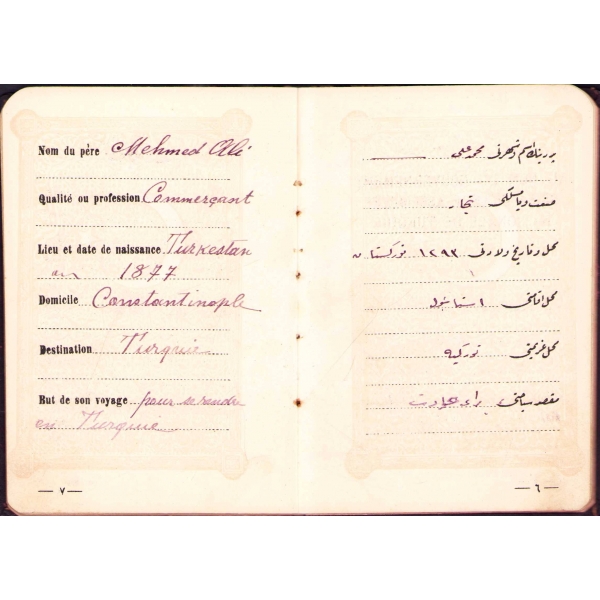 Nom du père Mehmed Ali
Qualité ou profession Commerçant
Lieu et date de naissance Turkestan
en 1877
Domicile Constantinople
Destination Turquie
But de son voyage pour se rendre
en Turquie
— ٧ —
پدرینك اسم و شهرتی محمد علی
صنعت ویا مسلکی تجار
محل و تاریخ ولادتی ١٢٩٣ تورکستان
محل اقامتی استانبول
محل عزیمتی تورکیه
مقصد سیاحتی برای عودت
— ٦ —